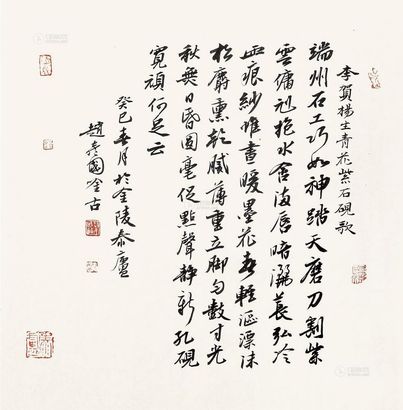 李賀楊生青花紫石硯歌
端州石工巧如神踏天磨刀割紫
雲傭刓抱水含滿唇暗灑萇弘冷
血痕紗帷晝暖墨花春輕漚漂沫
松麝熏乾膩薄重立脚勻數寸光
秋無日昏圓毫促點聲静新孔硯
寬頑何足云
癸巳春月於金陵泰廬
趙彥國吟古